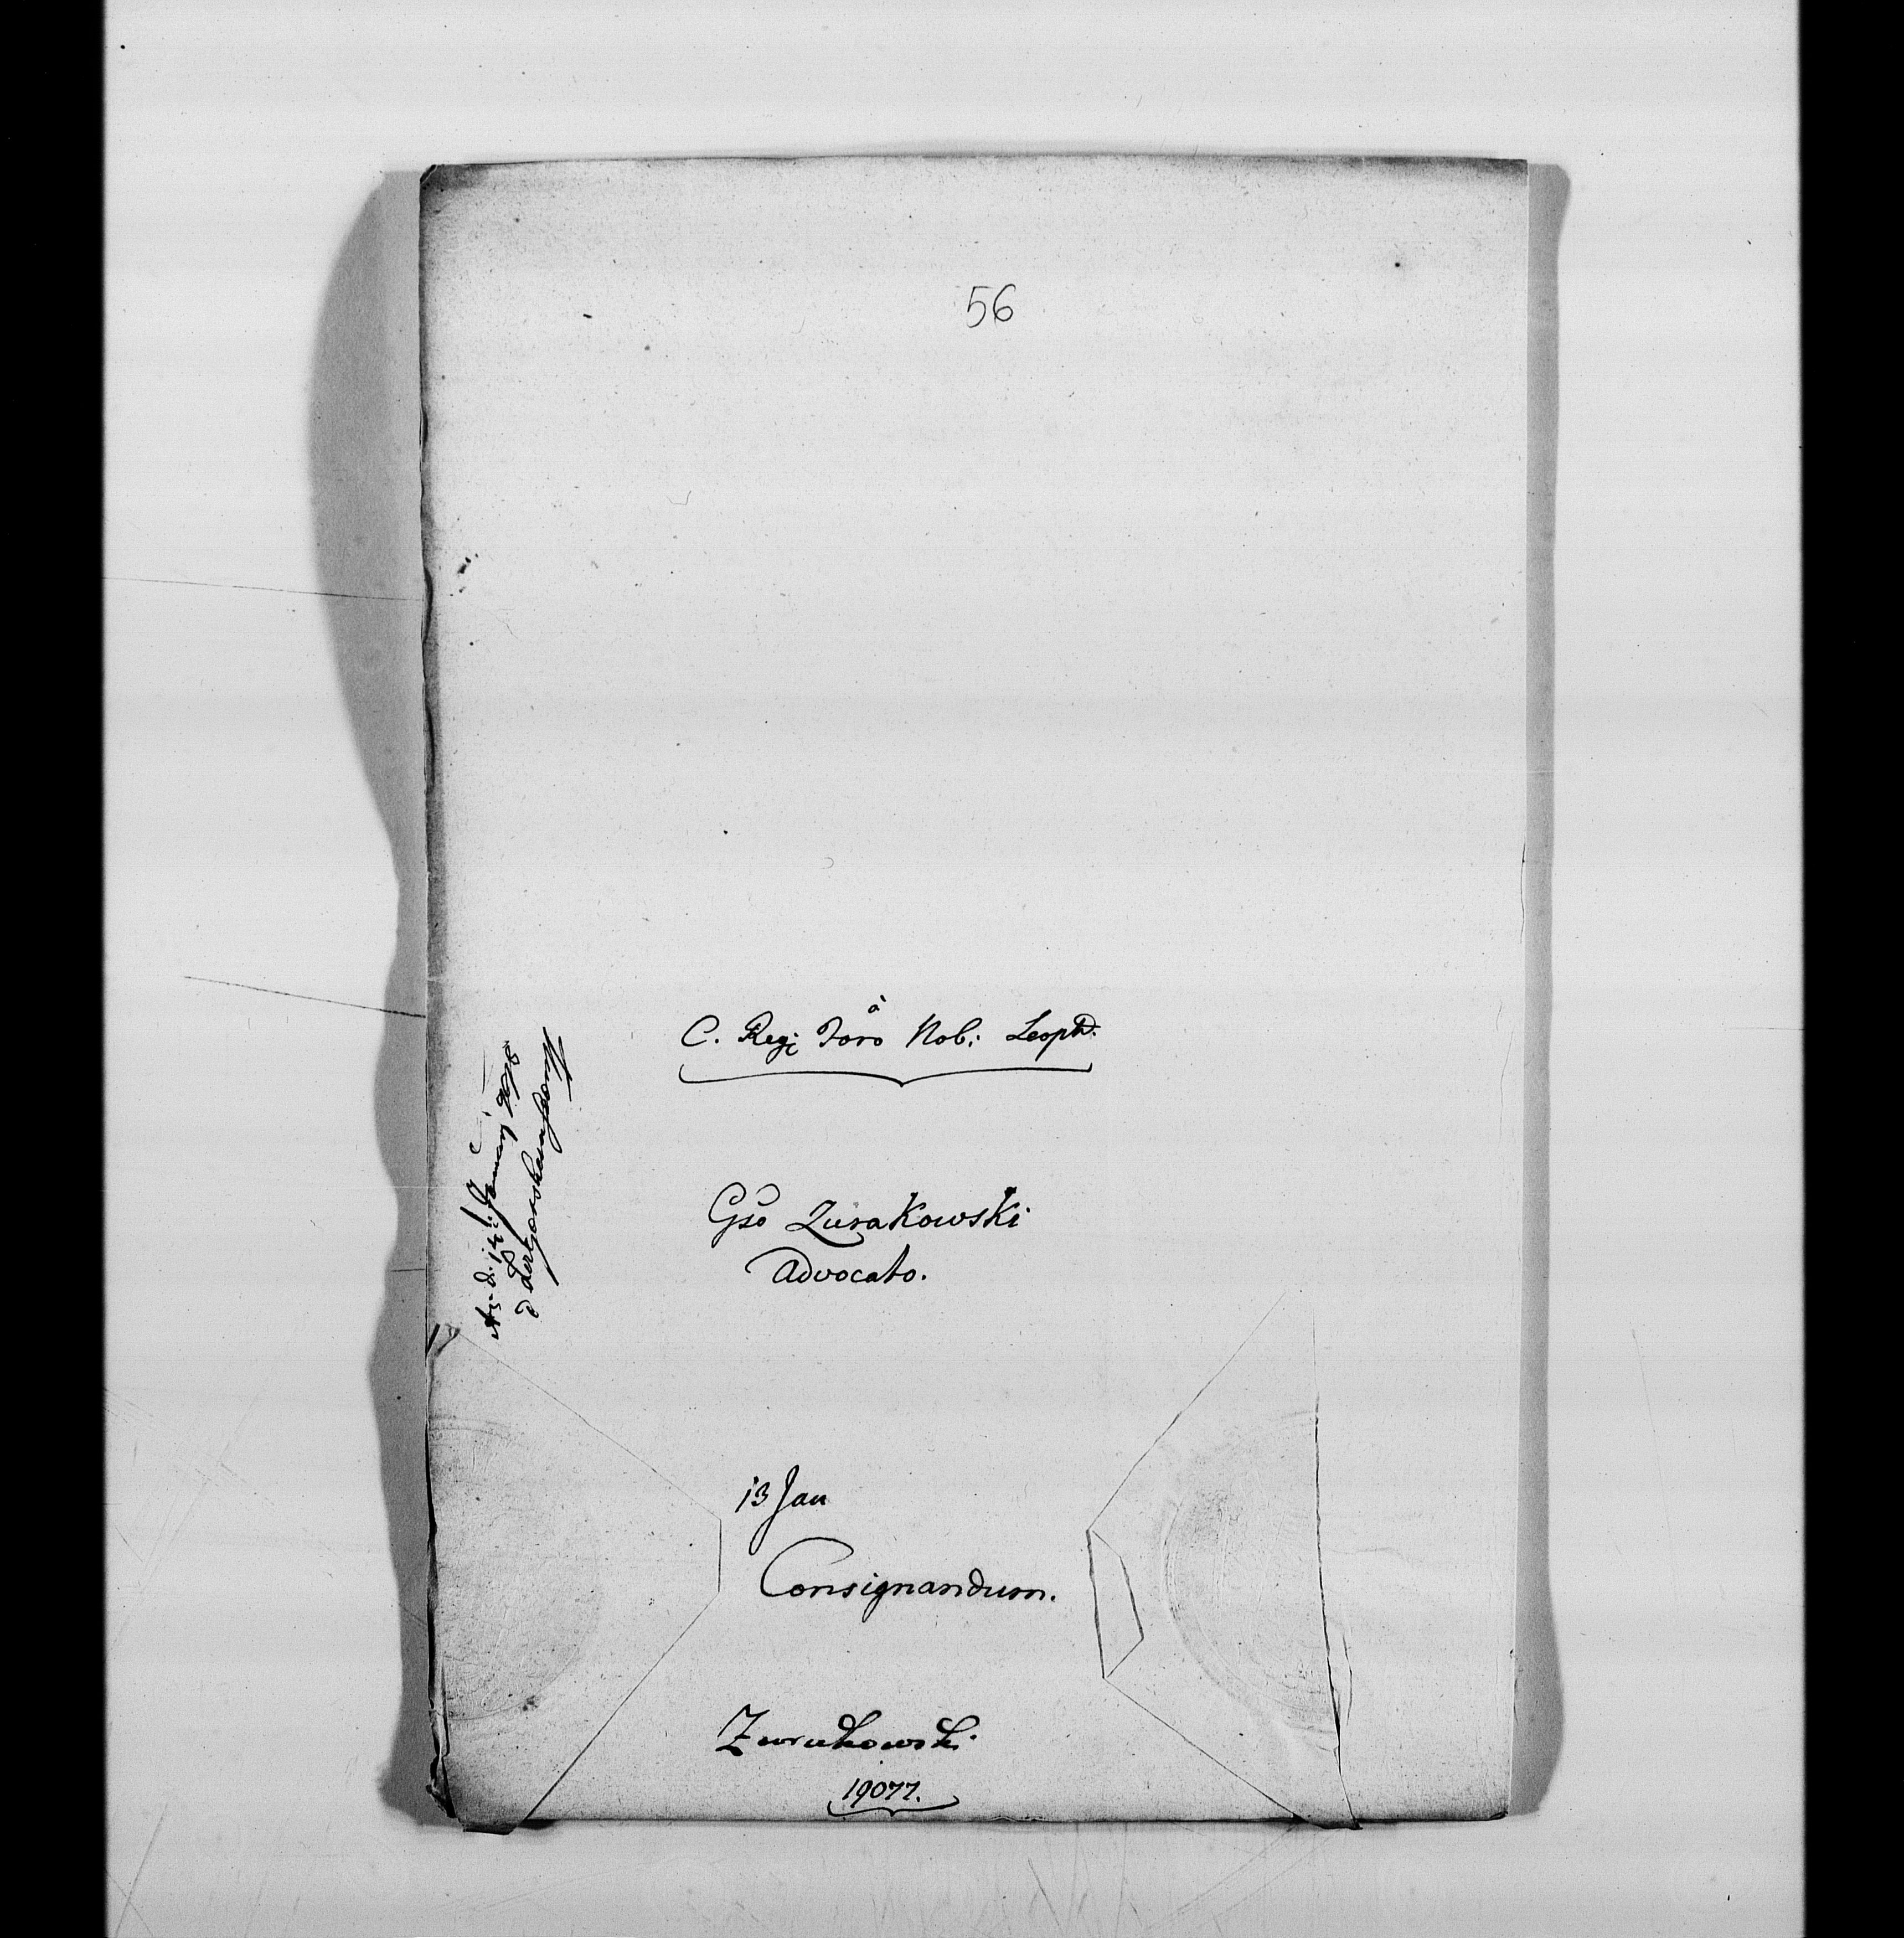 56
à
C. Reg: Foro Nob: Leopd.
Gso Zurakowski
Advocato.
13 Jan
Consignandum.
Zurakowski
19077.
d. 17 January